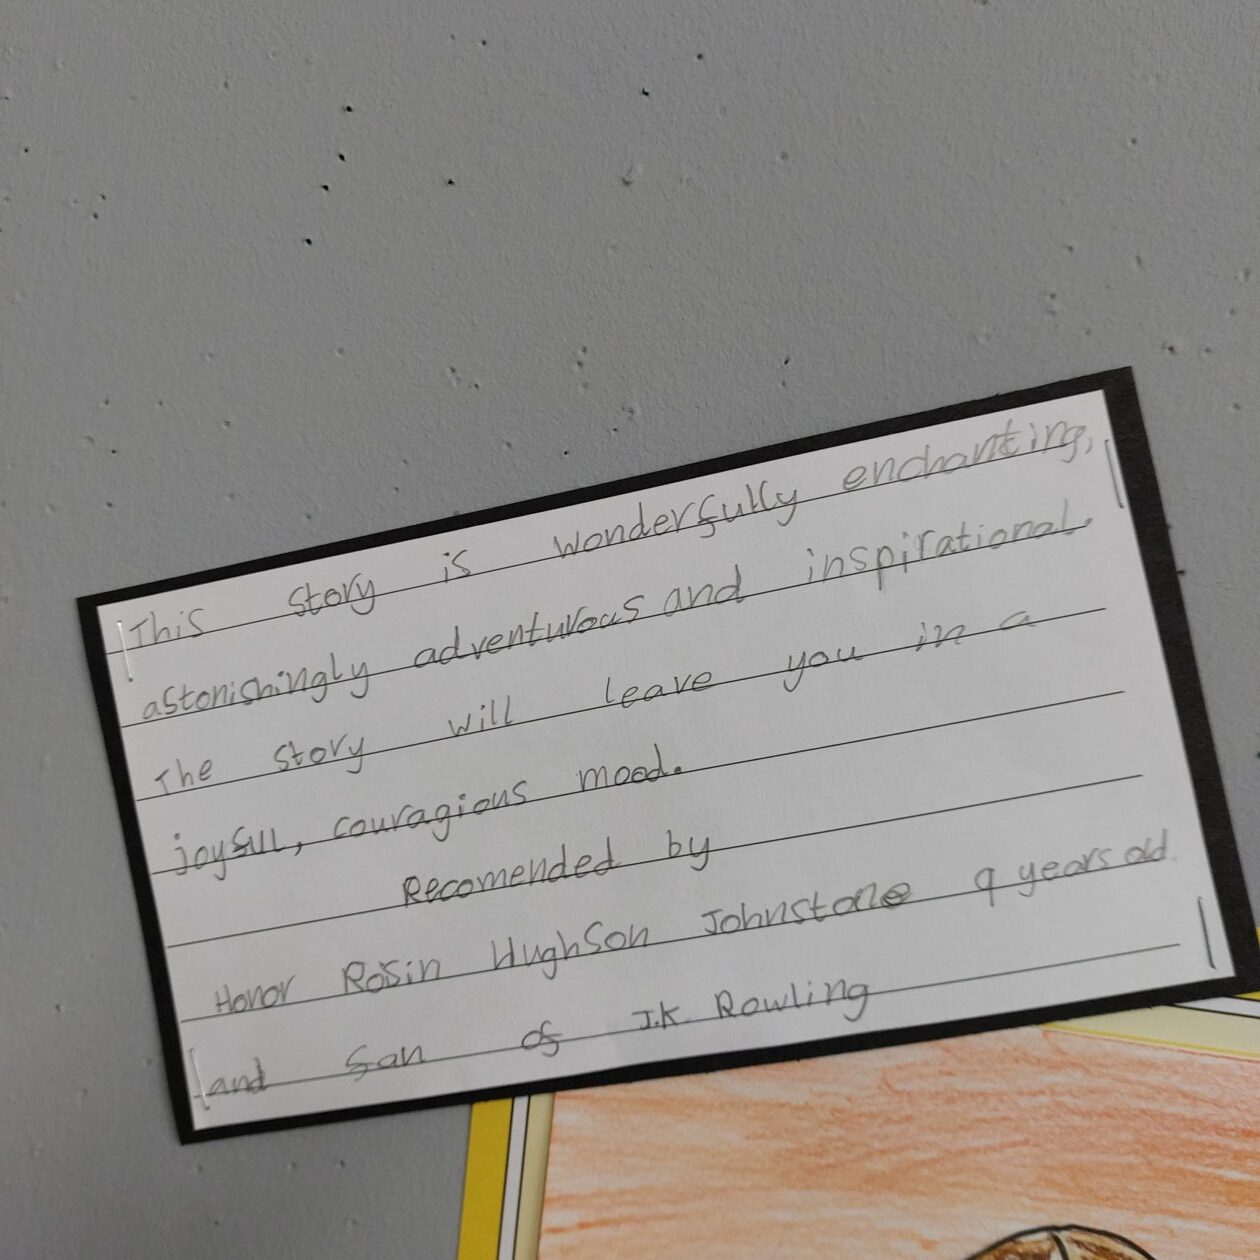 This story is wonderfully enchanting,
astonishingly adventurous and inspirational.
The story will leave you in a
joyful, couragious mood.
Recomended by
Honor Rosin Hughson Johnstone 9 years old.
and fan of J.K. Rowling